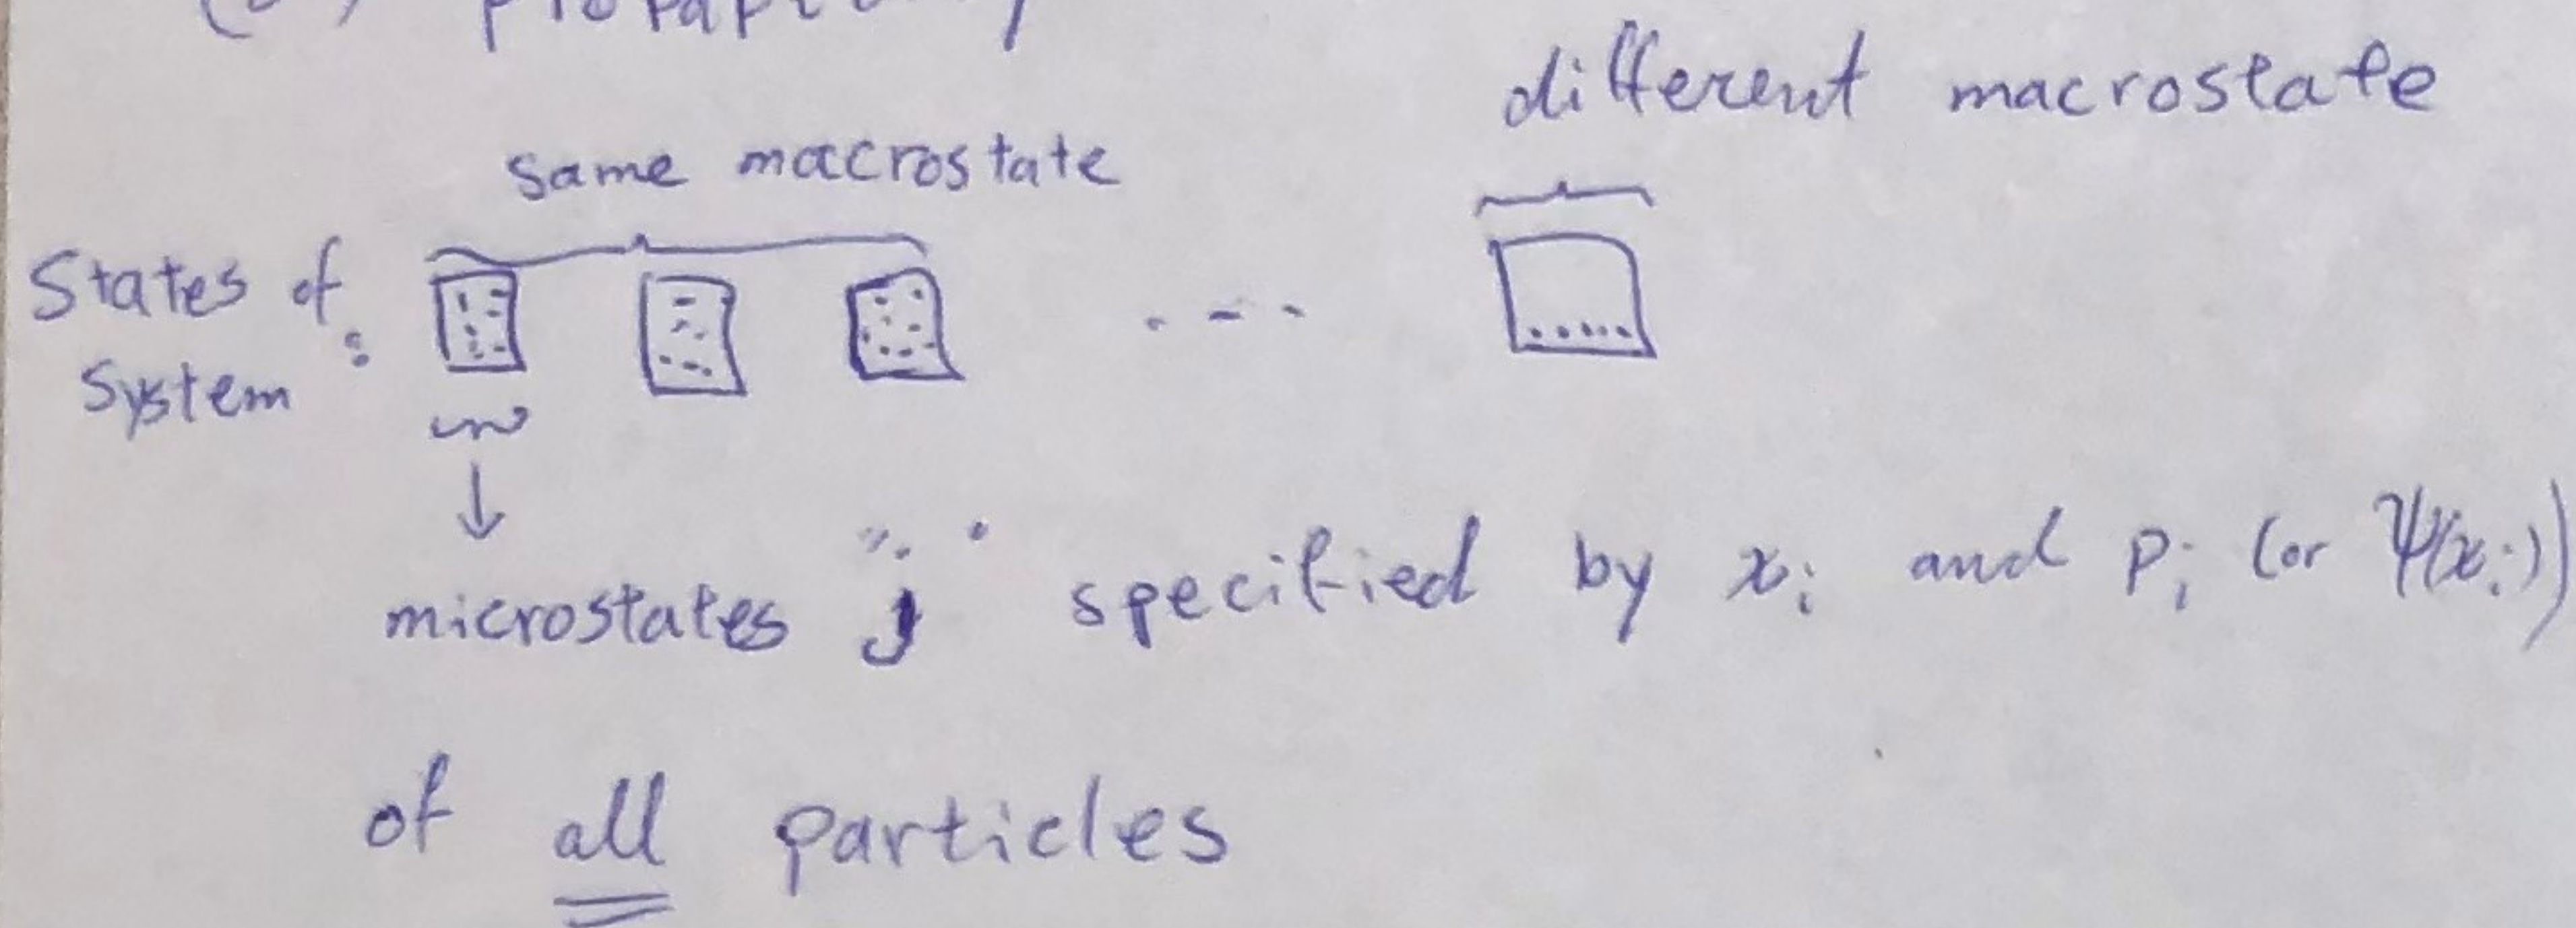 (2) probability
different macrostate
same macrostate
States of
System :
- - -
microstates "j" specified by x_i and p_i (or ψ(x_i))
of all particles